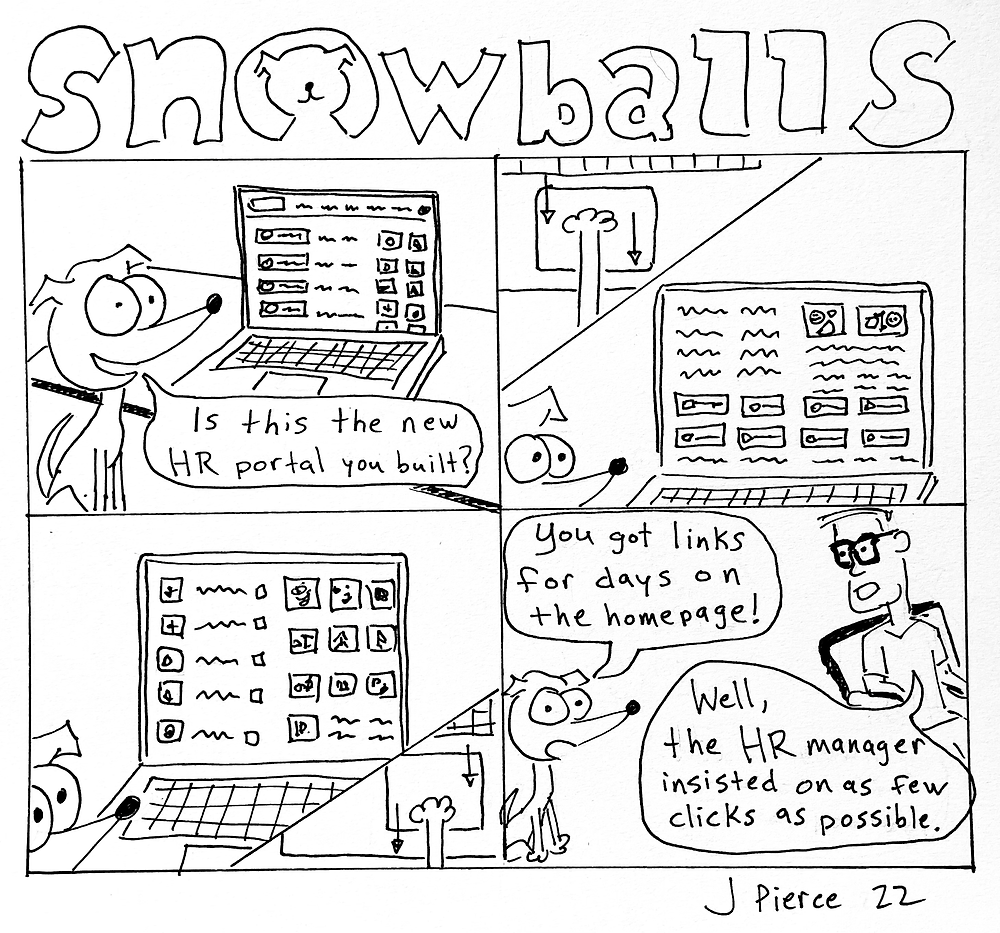 Snowballs
Is this the new
HR portal you built?
You got links
for days on
the homepage!
Well,
the HR manager
insisted on as few
clicks as possible.
J Pierce 22